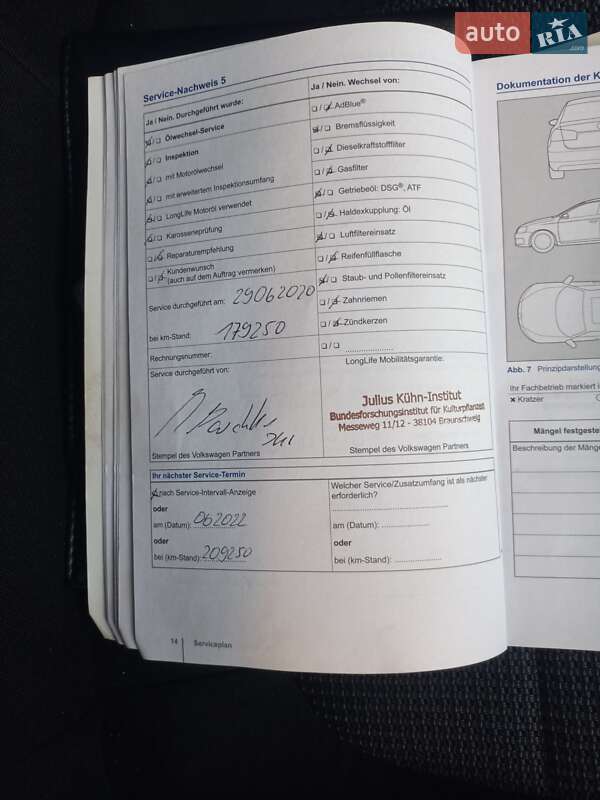 auto RIA.com
Service-Nachweis 5
Ja / Nein. Durchgeführt wurde:
Ölwechsel-Service
Inspektion
mit Motorölwechsel
mit erweitertem Inspektionsumfang
LongLife Motoröl verwendet
Karosserieprüfung
Reparaturempfehlung
Kundenwunsch
(auch auf dem Auftrag vermerken)
Service durchgeführt am: 29062020
bei km-Stand: 179250
Rechnungsnummer:
Service durchgeführt von:
Stempel des Volkswagen Partners
Ja / Nein. Wechsel von:
AdBlue®
Bremsflüssigkeit
Dieselkraftstofffilter
Gasfilter
Getriebeöl: DSG®, ATF
Haldexkupplung: Öl
Luftfiltereinsatz
Reifenfüllflasche
Staub- und Pollenfiltereinsatz
Zahnriemen
Zündkerzen
LongLife Mobilitätsgarantie:
Julius Kühn-Institut
Bundesforschungsinstitut für Kulturpflanzen
Messeweg 11/12 - 38104 Braunschweig
Stempel des Volkswagen Partners
Ihr nächster Service-Termin
nach Service-Intervall-Anzeige
oder
am (Datum): 062022
oder
bei (km-Stand): 209250
Welcher Service/Zusatzumfang ist als nächster
erforderlich?
am (Datum):
oder
bei (km-Stand):
14 Serviceplan
Dokumentation der K
Abb. 7 Prinzipdarstellung
Ihr Fachbetrieb markiert in
× Kratzer
Mängel festgeste
Beschreibung der Mänge